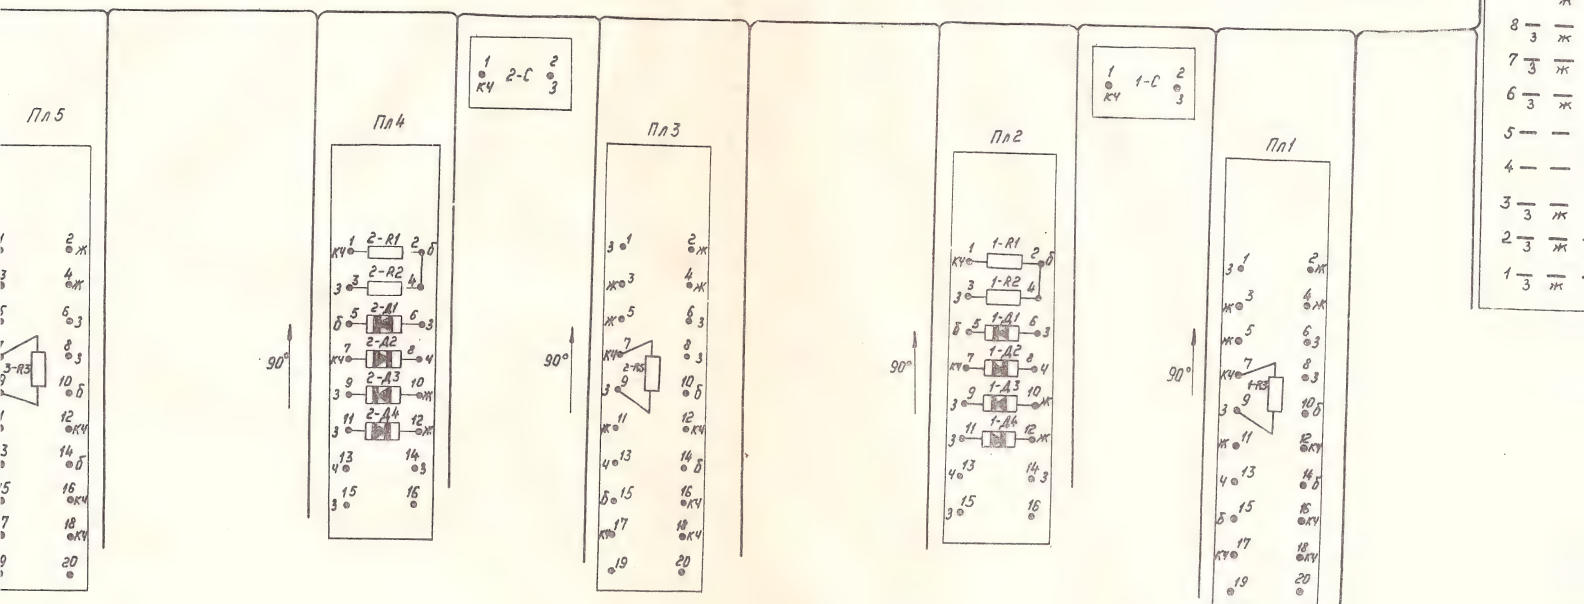 Пл5
2 ж
4 ж
6 з
8 з
3-R3
10 б
12 кч
14 б
16 кч
18 кч
20
90°
Пл4
кч 1 2-R1 2 б
з 3 2-R2 4
б 5 2-Д1 6 з
кч 7 2-Д2 8 ч
з 9 2-Д3 10 ж
з 11 2-Д4 12 ж
ч 13 14 з
з 15 16
1 2-С 2
кч з
90°
Пл3
з 1 2 ж
ж 3 4 ж
ж 5 6 з
кч 7 8 з
з 9 10 б
ж 11 12 кч
ч 13 14 б
б 15 16 кч
кч 17 18 кч
19 20
90°
Пл2
кч 1 1-R1 2 б
з 3 1-R2 4
б 5 1-Д1 6 з
кч 7 1-Д2 8 ч
з 9 1-Д3 10 ж
з 11 1-Д4 12 ж
ч 13 14 з
з 15 16
1 1-С 2
кч з
90°
Пл1
з 1 2 ж
ж 3 4 ж
ж 5 6 з
кч 7 8 з
1-R3
з 9 10 б
ж 11 12 кч
ч 13 14 б
б 15 16 кч
кч 17 18 кч
19 20
ж
8 з ж
7 з ж
6 з ж
5
4
3 з ж
2 з ж
1 з ж